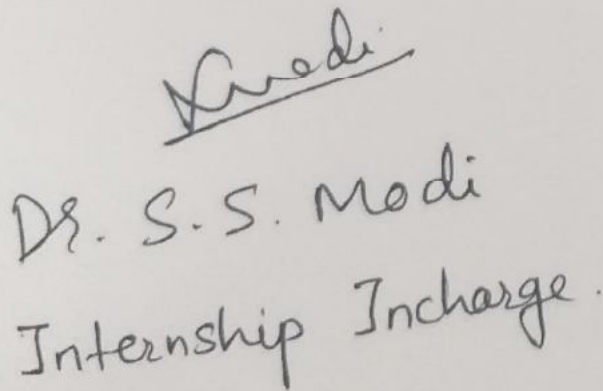 Dr. S. S. Modi
Internship Incharge.